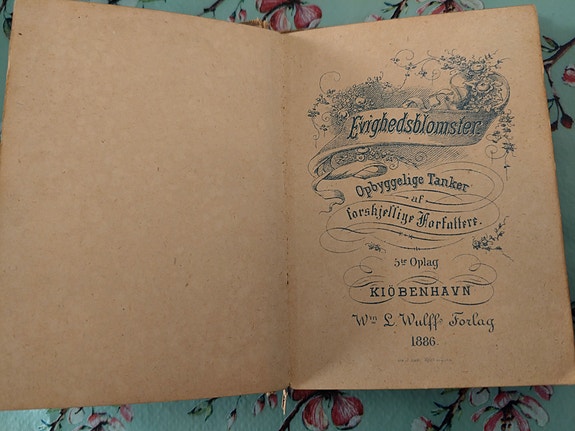 Evighedsblomster
Opbyggelige Tanker
af
forskjellige Forfattere.
5te Oplag
KIÖBENHAVN
Wm L. Wulffs Forlag
1886.